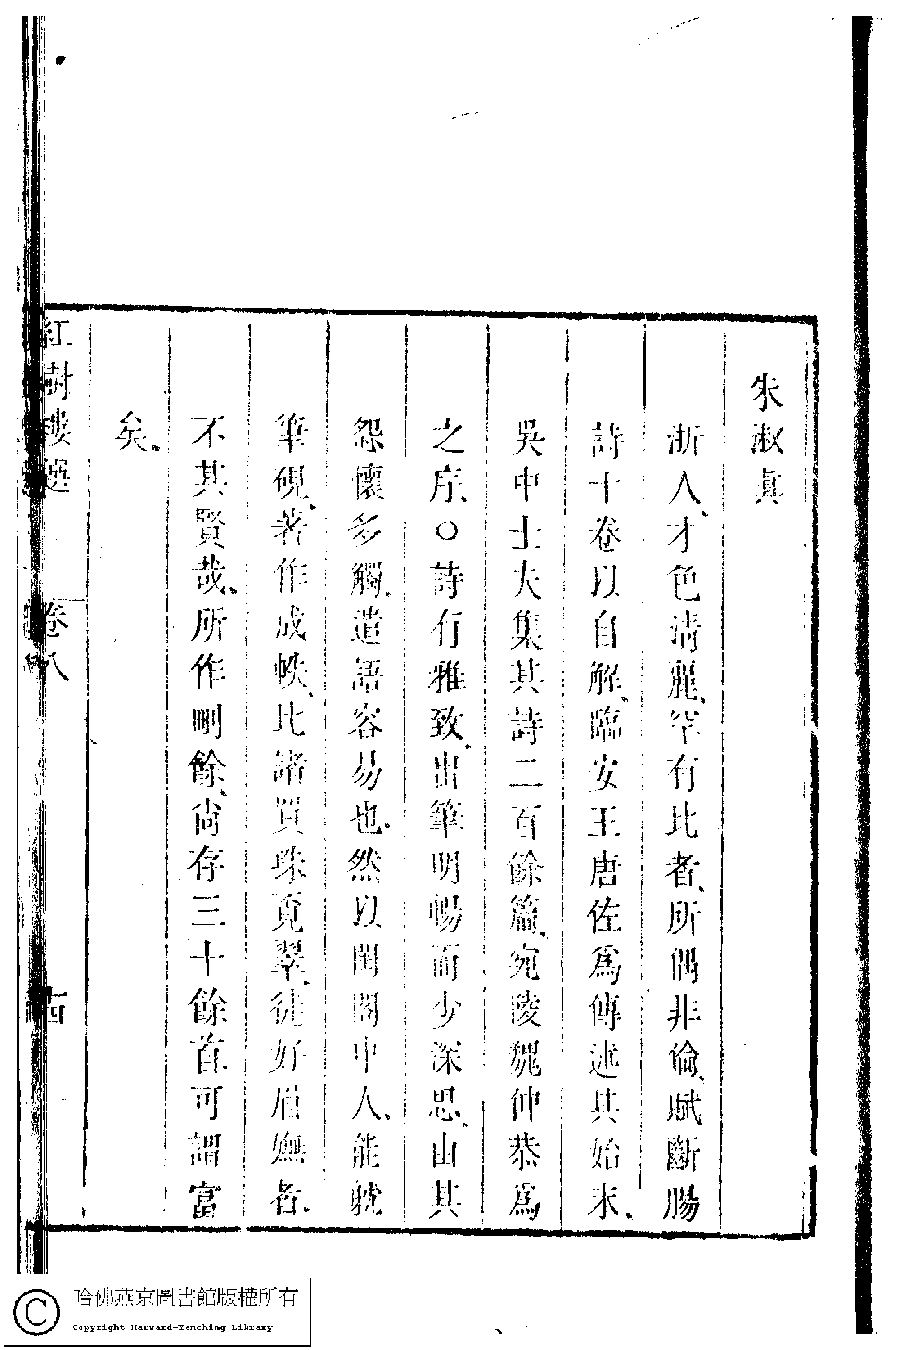 朱淑真
浙人、才色清麗、罕有比者、所偶非倫、賦斷腸
詩十卷以自解、臨安王唐佐爲傳述其始末、
吳中士大集其詩二百餘篇、宛陵魏仲恭爲
之序、○詩有雅致、出筆明暢而少深思、由其
怨懷多觸、遣語容易也、然以閨閣中人、能躭
筆硯、著作成帙、比諸買珠覓翠、徒好眉嫵者、
不其賢哉、所作刪餘、尚存三十餘首、可謂富
矣、
紅樹樓選
卷八
哈佛燕京圖書館版權所有
Copyright Harvard-Yenching Library